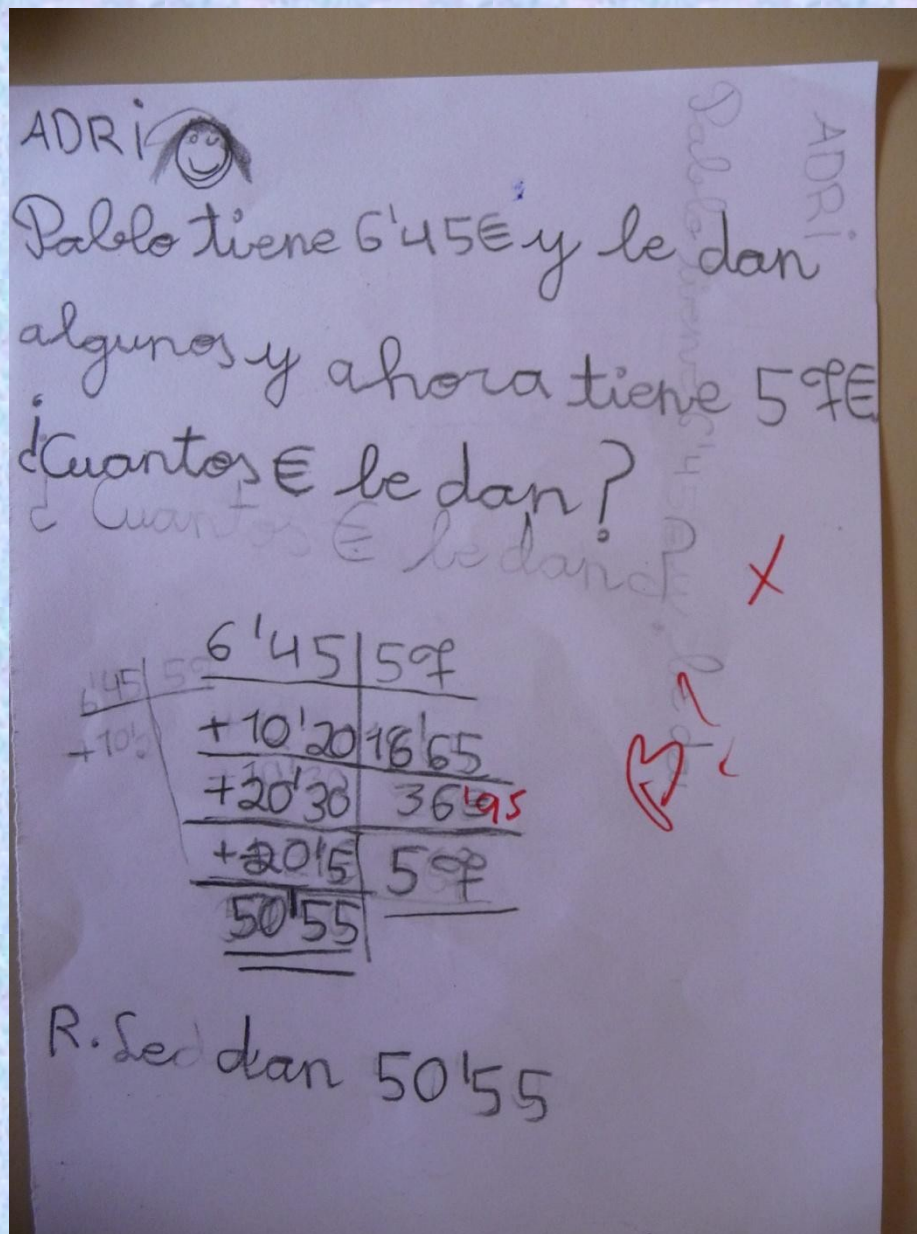 ADRi
Pablo tiene 6'45€ y le dan
algunos y ahora tiene 57€
¿Cuantos € le dan?
6'45 57
+10'20 16'65
+20'30 36'95
+20'5 57
50'55
R. Le dan 50'55